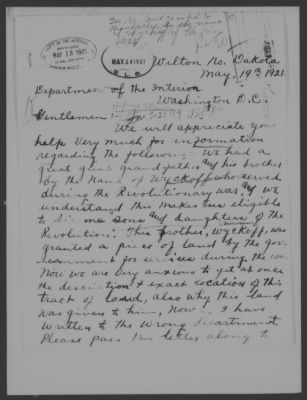 MAY 13 1921
MAY 14 1921
G L O
Wilton No. Dakota
May. 19th 1921
Department of the Interior
Washington D.C.
Gentlemen:-
We will appreciate you
help very much for information
regarding the following: We had a
great great grand father and his brother
by the name of Wyckoff who served
during the Revolutionary was, and we
understand this makes us eligible
to sons and daughters of the
Revolution. This brother, Wyckoff, was
granted a piece of land by the gov-
ernment for services during the war.
Now we are very anxious to get at once
the description & exact location of this
tract of land, also why this land
was given to him, Now I have
written to the wrong department
Please pass this letter along to